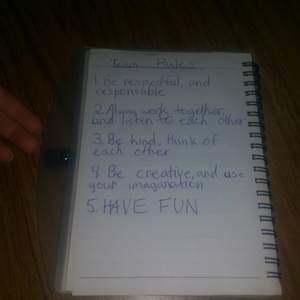 Team Rules
1. Be respectful, and
responsable
2. Alway work together,
and listen to each other
3. Be kind, think of
each other
4. Be creative, and use
your imaganation
5. HAVE FUN